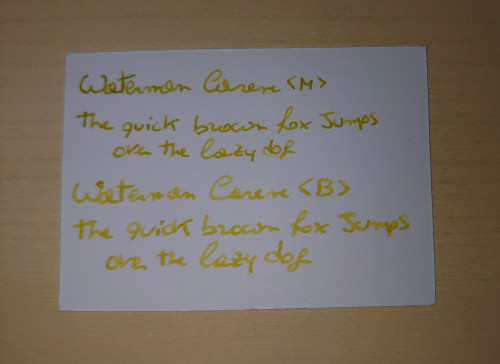 Waterman Carene <M>
The quick brown fox Jumps
over the lazy dog
Waterman Carene <B>
The quick brown fox Jumps
over the lazy dog